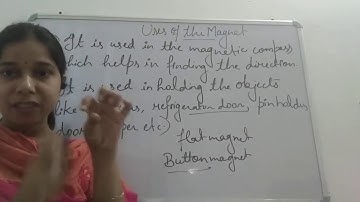 Uses of the Magnet
It is used in the magnetic compass
which helps in finding the direction
It is used in holding the objects
like refrigerator door, pin holder
door etc.
flat magnet
Button magnet